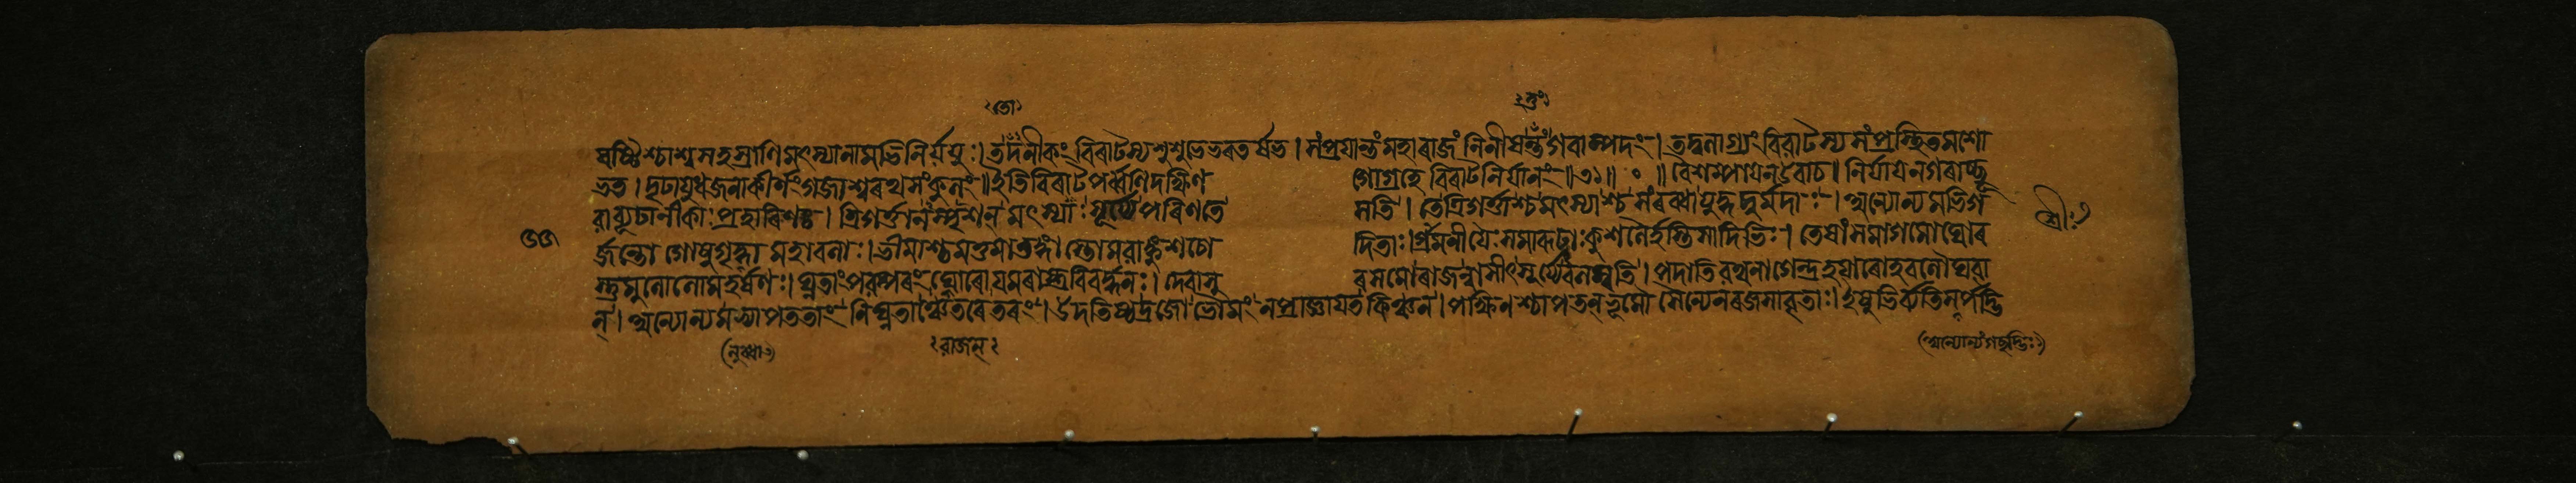 ষষ্টিশ্চাশ্বসহস্ৰাণি মৎস্যানামভিনিৰ্য্যযুঃ। তদনীকং বিৰাটস্য শুশুভে ভৰতৰ্ষভ। সংপ্ৰযান্তং মহাৰাজং নিনীষন্তং গবাম্পদং। তদ্বলাগ্ৰ্যং বিৰাটস্য সংপ্ৰস্থিতমশো
ভত। দৃঢাযুধজনাকীৰ্ণং গজাশ্বৰথসংকুলং॥ ইতি বিৰাটপৰ্ব্বণি দক্ষিণ গোগ্ৰহে বিৰাটনিৰ্যানং॥৩১॥ ০ ॥ বৈশম্পাযন উবাচ। নিৰ্যায নগৰাচ্ছূ
ৰা ব্যূঢানীকাঃ প্ৰহাৰিণঃ। ত্ৰিগৰ্ত্তানস্পৃশন্ মৎস্যাঃ সূৰ্য্যে পৰিণতে সতি। তে ত্ৰিগৰ্ত্তাশ্চ মৎস্যাশ্চ সংৰব্ধা যুদ্ধদুৰ্মদাঃ। অন্যোন্যমভিগ
ৰ্জ্জন্তো গোষু গৃদ্ধা মহাবলাঃ। ভীমাশ্চ মত্তমাতঙ্গাস্তোমৰাঙ্কুশচো দিতাঃ। গ্ৰামনীযৈঃ সমাৰূঢাঃ কুশলৈৰ্হস্তিসাদিভিঃ। তেষাং সমাগমো ঘোৰ
স্তুমুলো লোমহৰ্ষণঃ। ঘ্নতাং পৰস্পৰং ঘোৰো যমৰাষ্ট্ৰবিবৰ্দ্ধনঃ। দেবাসু ৰসমো ৰাজন্নাসীৎসূৰ্য্যে বিলম্বতি। পদাতিৰথনাগেন্দ্ৰহযাৰোহবলৌঘবা
ন্। অন্যোন্যমভ্যাপততাং নিঘ্নতাঞ্চেতৰেতৰং। উদতিষ্ঠদ্ৰজো ভৌমং ন প্ৰাজ্ঞাযত কিঞ্চন। পক্ষিনশ্চাপতন্ ভূমৌ সৈন্যেন ৰজসাবৃতাঃ। ইষুভিৰ্ব্যতিসৰ্পদ্ভি
ৰাজন্
শ্ৰীঃ